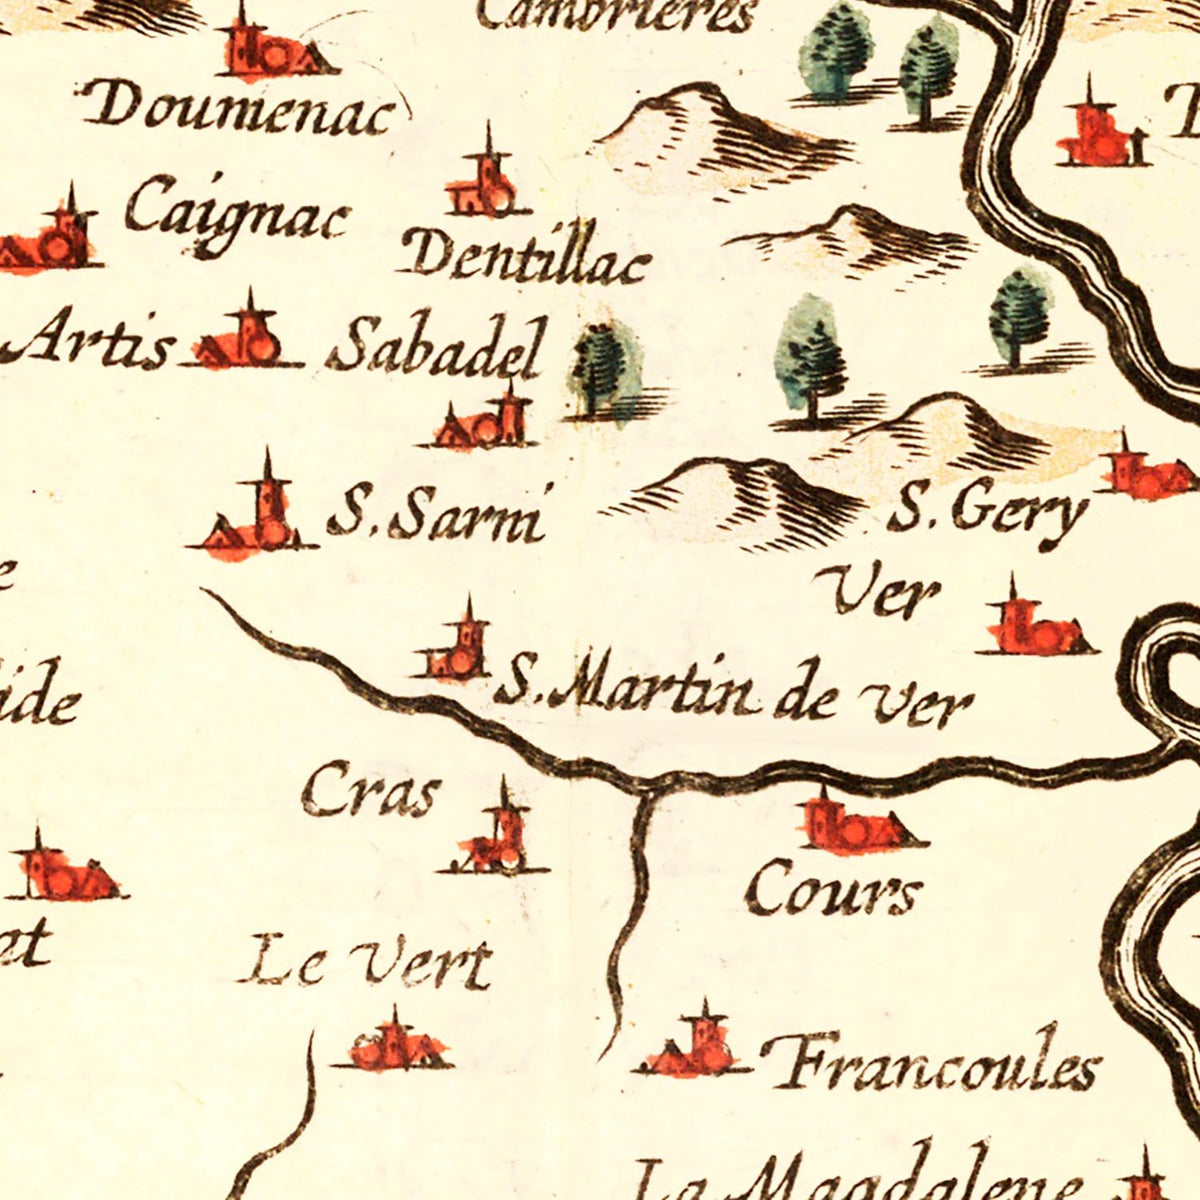 Cambrieres
Doumenac
Caignac
Dentillac
Artis
Sabadel
S. Sarni
S. Gery
Ver
S. Martin de ver
Cras
Cours
Le Vert
Francoules
La Magdalene